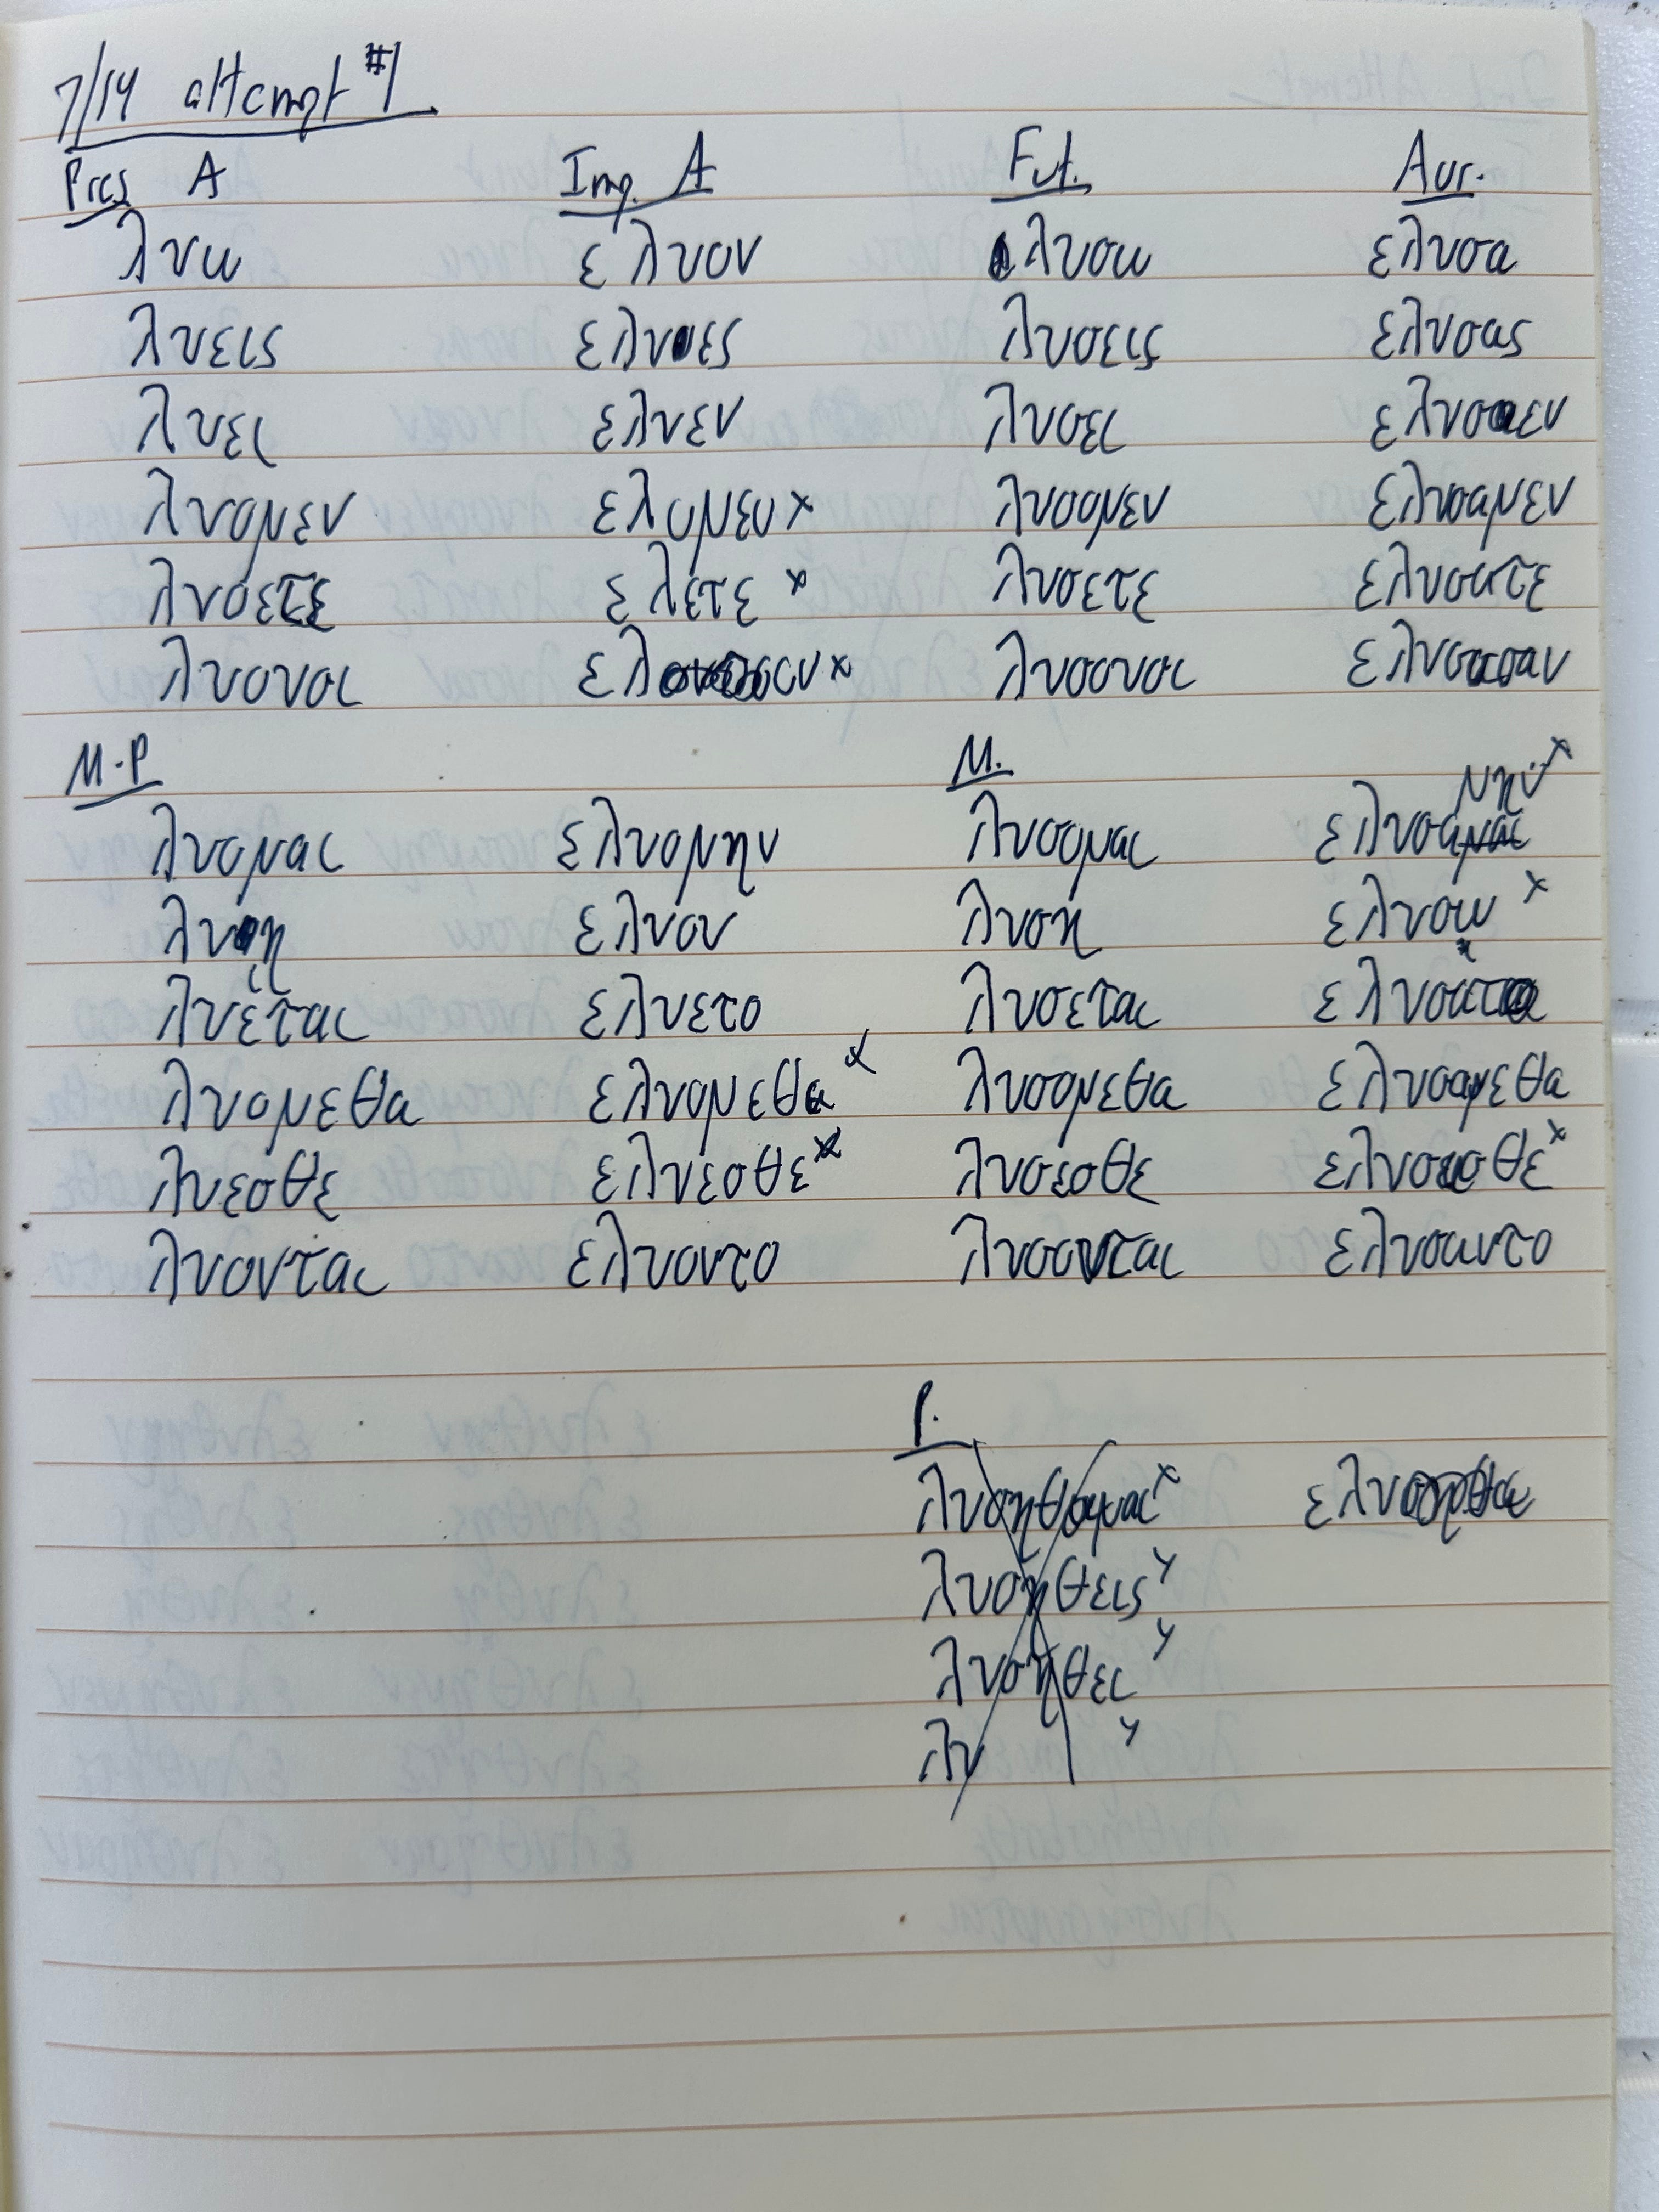 7/14 attempt #1
Pres A Imp. A Fut. Aor.
λυω ε λυον λυσω ελυσα
λυεις ελυες λυσεις ελυσας
λυει ελυεν λυσει ελυσεν
λυομεν ελομεν x λυσομεν ελυσαμεν
λυετε ελετε x λυσετε ελυσατε
λυουσι x λυσουσι ελυσασαν
M-P M. μην x
λυομαι ελυομην λυσομαι ελυσαμαι
λυη ελυου λυση ελυσω x
λυεται ελυετο λυσεται ελυσατο
λυομεθα ελυομεθα x λυσομεθα ελυσαμεθα
λυεσθε ελυεσθε x λυσεσθε x
λυονται ελυοντο λυσονται ελυσαντο
P.
x
λυσηθεις
λυσηθει
λυ